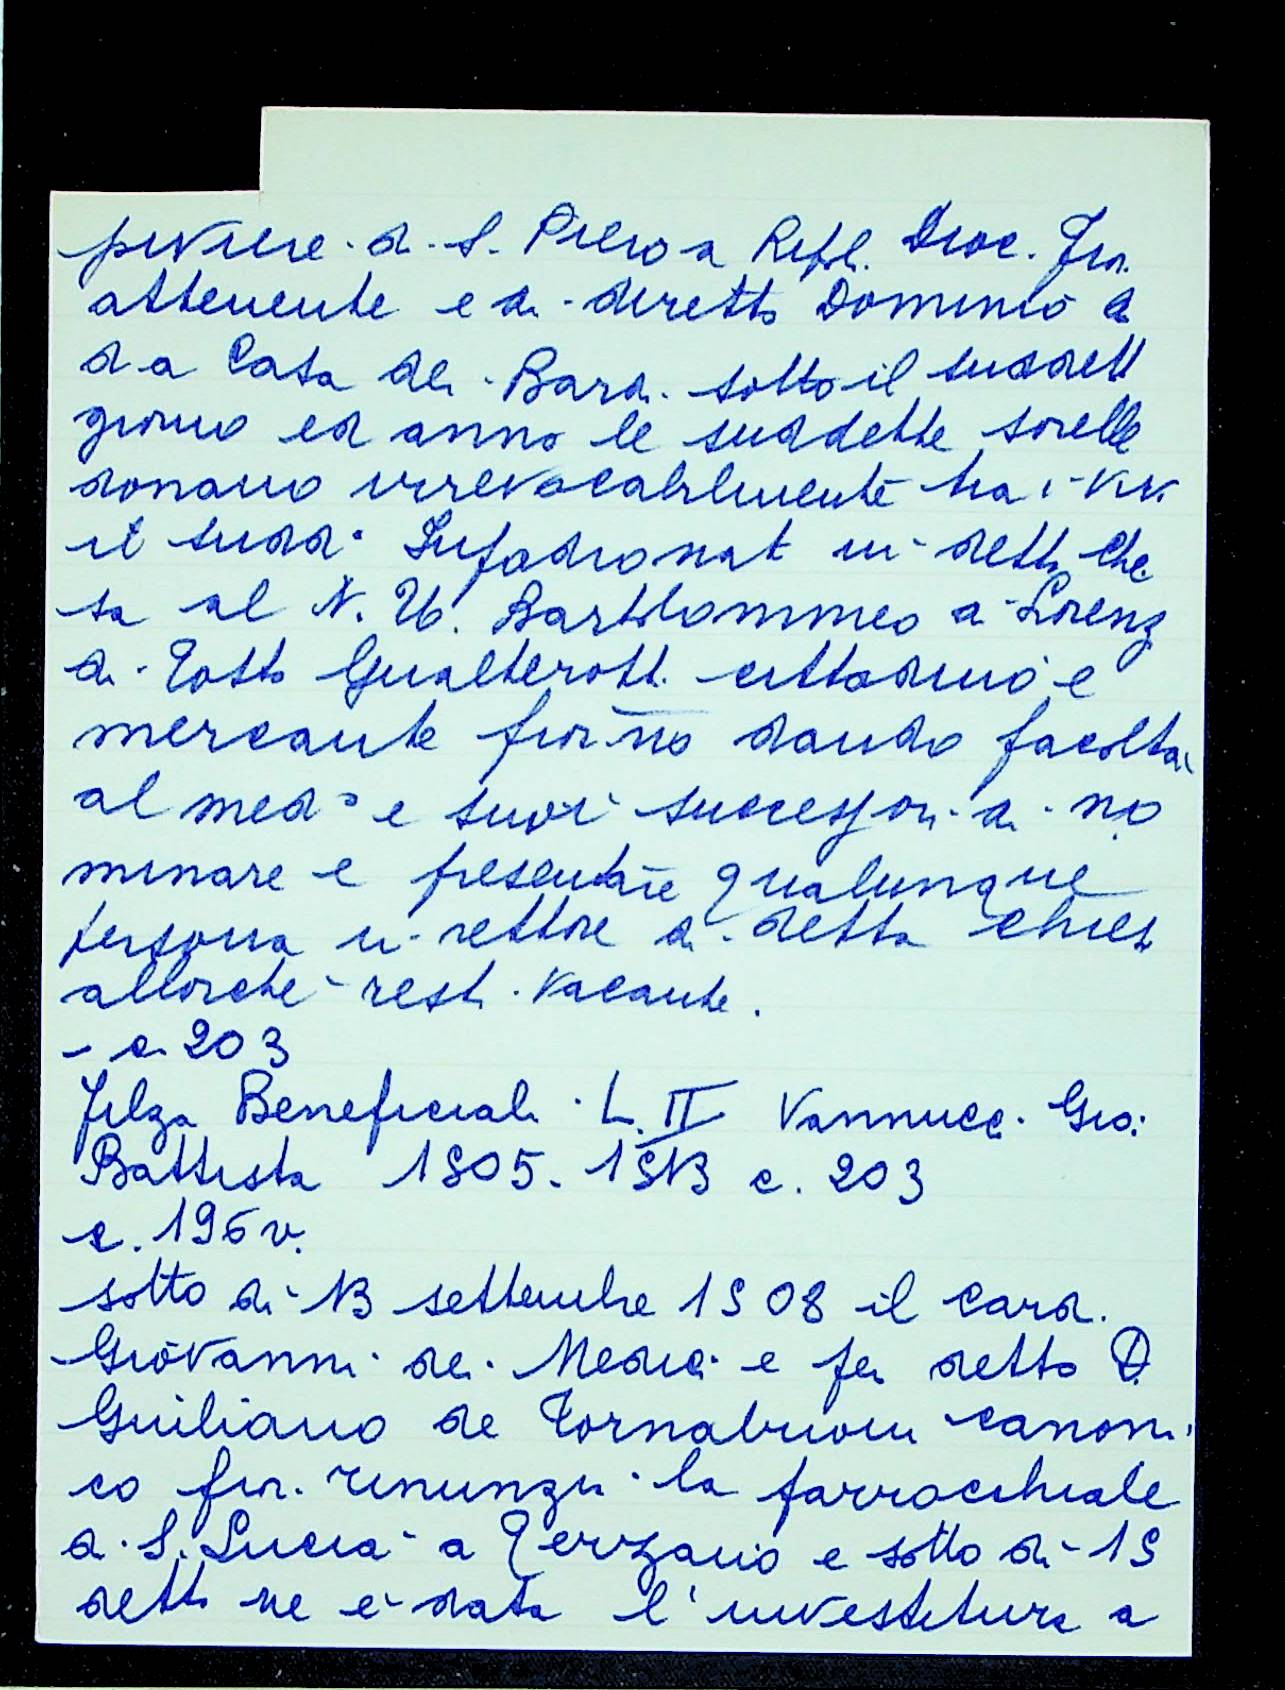 piviere di S. Piero a Ripoli. Dioc. Fior.
attenente e di diretto Dominio di
d a Casa dei Bardi sotto il suddett
giorno ed anno le suddette sorelle
donano irrevocabilmente tra i vivi
il sudd° in detta Chie
sa al N. U. Bartolommeo di Lorenz
di Totto Gualterotti cittadino e
mercante fior.no dando facoltà
al med° e suoi successori di no
minare e presentare qualunque
persona in rettore di detta chies
allorché resti vacante.
- c. 203
Filza Beneficiali L. II Vannucci Gio:
Battista 1505. 1513 c. 203
c. 196 v.
sotto dì 13 settembre 1508 il Card.
Giovanni dei Medici e per detto D.
Guiliano de Tornabuoni canoni
co fior. rinunziò la parrocchiale
di S. Lucia a Terzano e sotto dì 15
detto ne è data l'investitura a